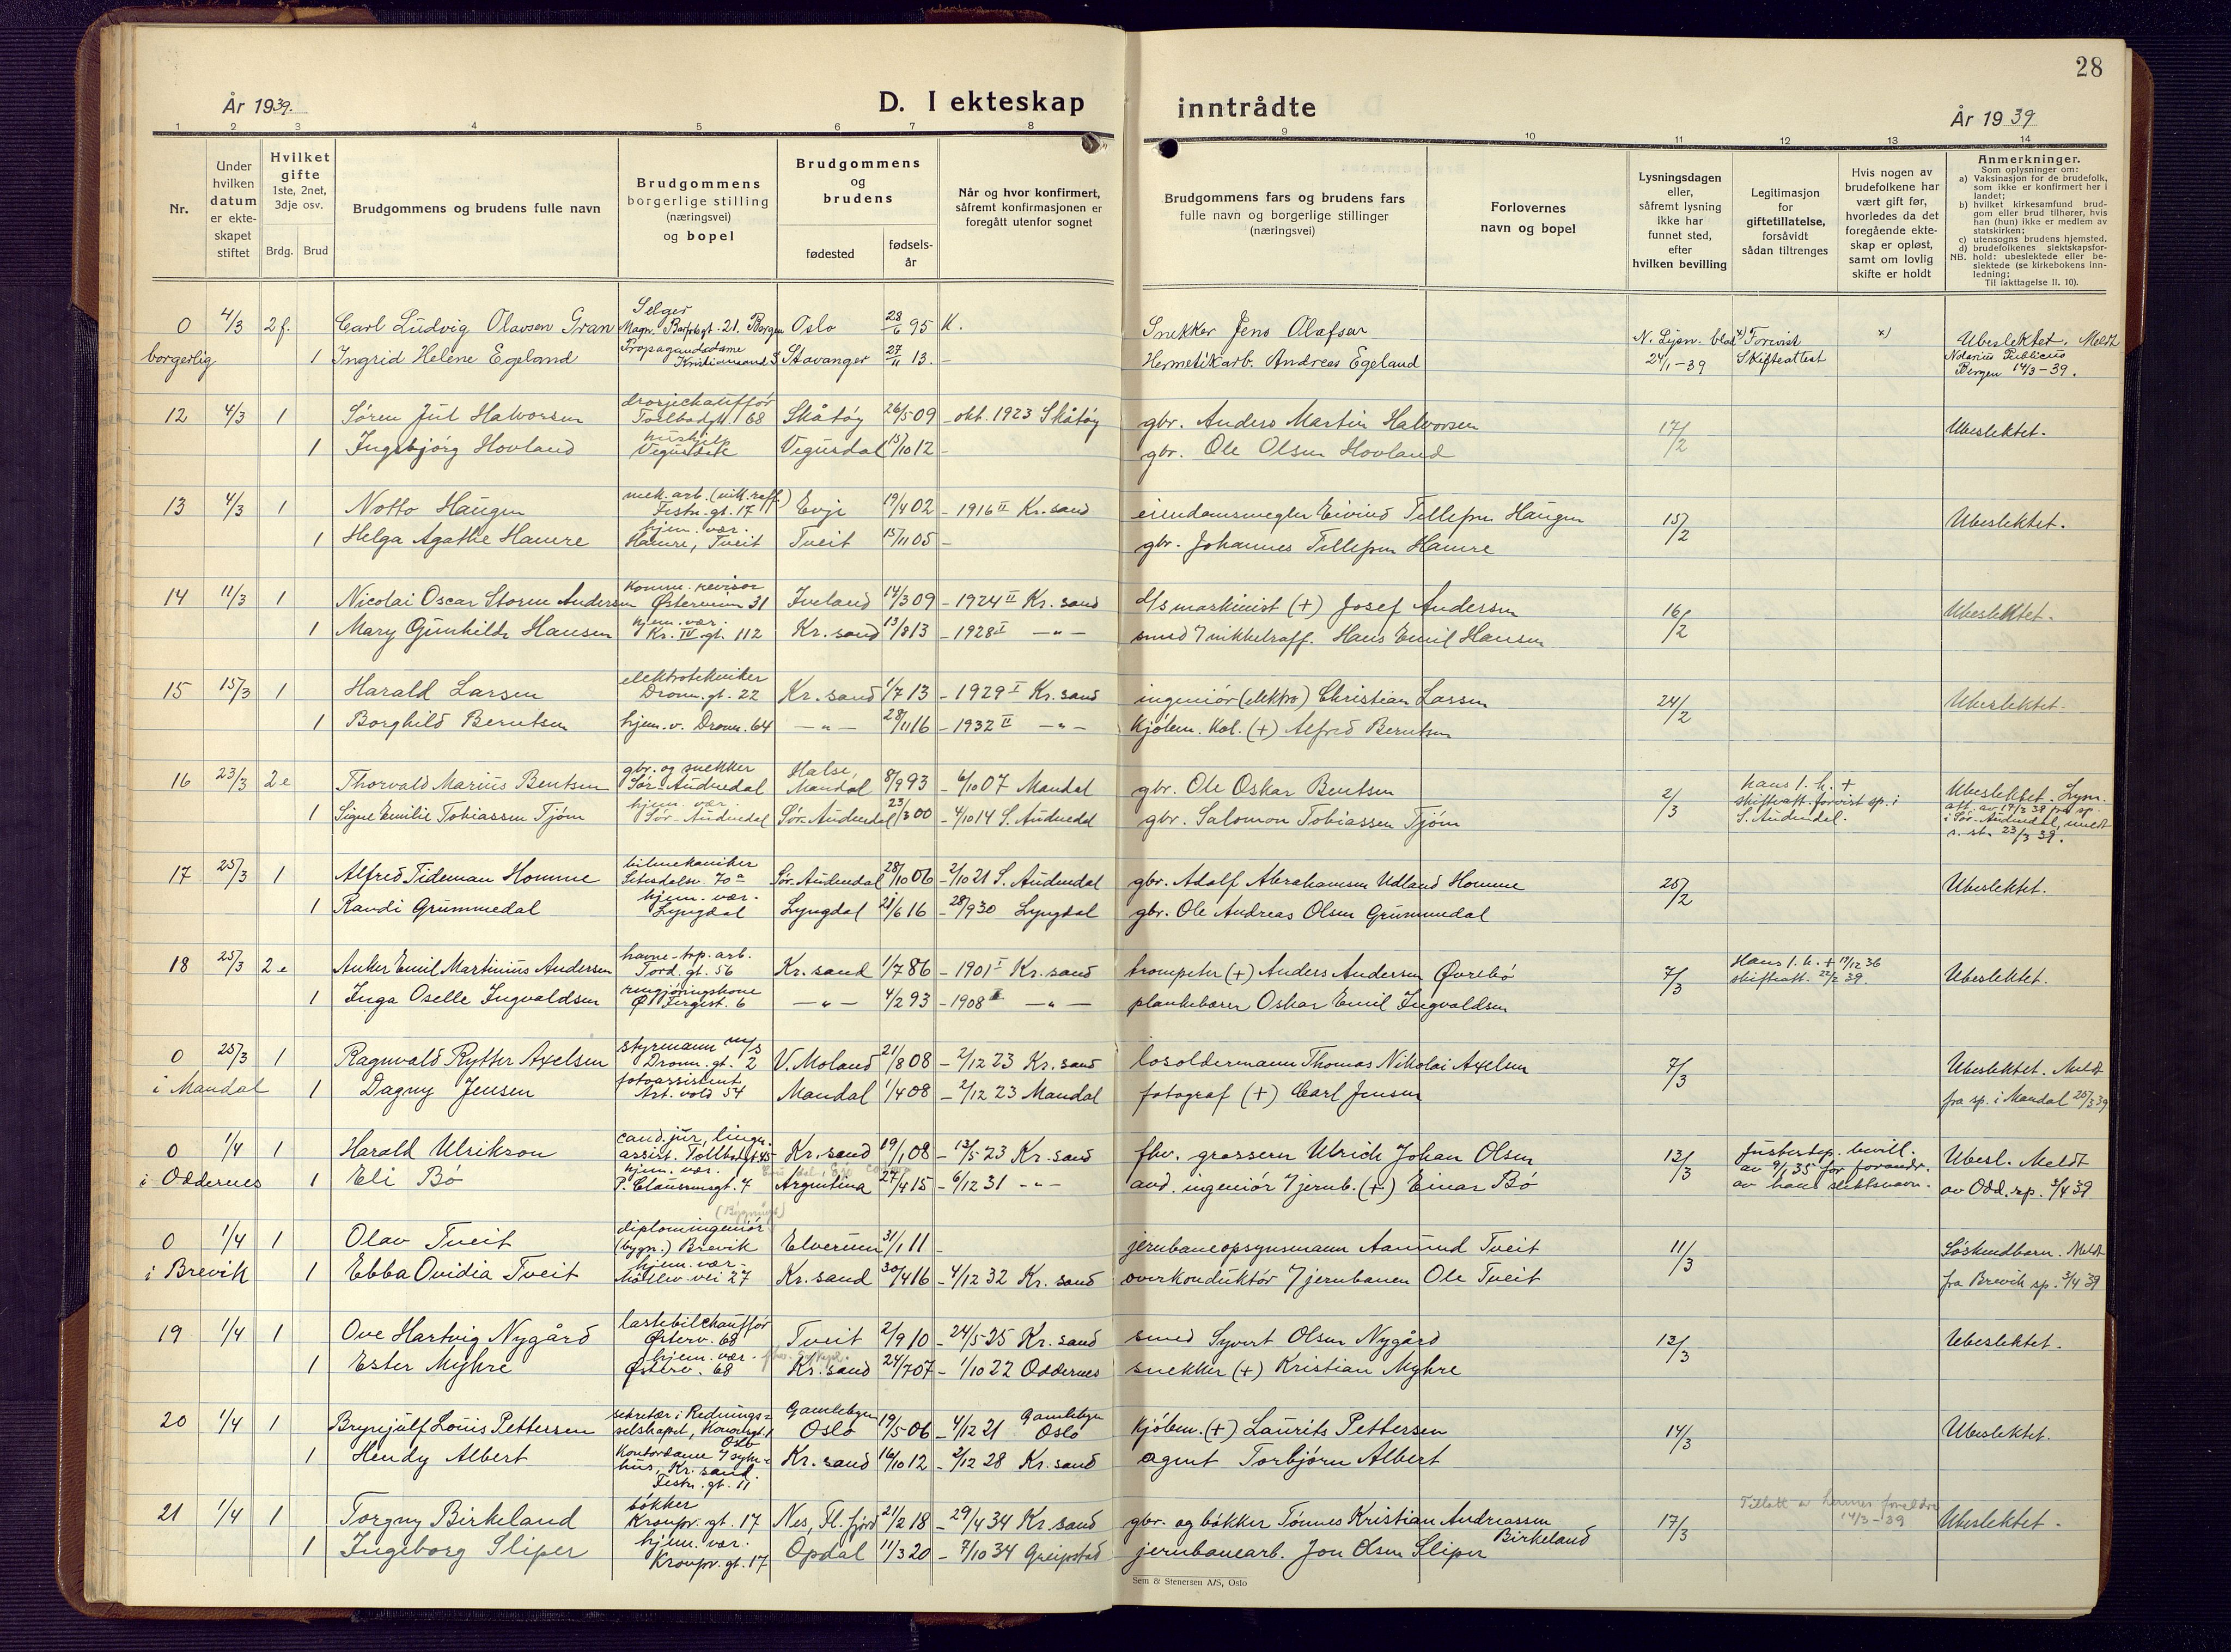 28
År 1939.
D. I ekteskap inntrådte
År 1939
1 2 3 4 5 6 7 8 9 10 11 12 13 14
Nr.
Under hvilken datum er ekte- skapet stiftet
Hvilket gifte 1ste, 2net, 3dje osv.
Brdg. Brud
Brudgommens og brudens fulle navn
Brudgommens borgerlige stilling (næringsvei) og bopel
Brudgommens og brudens
fødested
fødsels- år
Når og hvor konfirmert, såfremt konfirmasjonen er foregått utenfor sognet
Brudgommens fars og brudens fars fulle navn og borgerlige stillinger (næringsvei)
Forlovernes navn og bopel
Lysningsdagen eller, såfremt lysning ikke har funnet sted, efter hvilken bevilling
Legitimasjon for giftetillatelse, forsåvidt sådan tiltrenges
Hvis nogen av brudefolkene har vært gift før, hvorledes da det foregående ekte- skap er opløst, samt om lovlig skifte er holdt
Anmerkninger.
Som oplysninger om:
a) Vaksinasjon for de brudefolk, som ikke er konfirmert her i landet;
b) hvilket kirkesamfund brud- gom eller brud tilhører, hvis han (hun) ikke er medlem av statskirken;
c) utensogns brudens hjemsted.
d) brudefolkenes slektskapsfor-
NB. hold: ubeslektede eller be- slektede (se kirkebokens inn- ledning;
Til iakttagelse II. 10).
Selger
0 4/3 2 f. Carl Ludvig Olavsen Gran Magn. Barfotsgt. 21. Bergen Oslo 28/6 95 K. Snekker Jens Olafsen N. Lysn. blad x) Forevist x) Ubeslektet. Meldt
Propagandadame
borgerlig 1 Ingrid Helene Egeland Kristiansand S. Stavanger 27/11 13. - Hermetikarb. Andreas Egeland 24/1-39 Skifteattest Notarius Publicus
Bergen 14/3-39.
drosjechauffør
12 4/3 1 Søren Jul Halvorsen Tollbodgt. 68 Skåtøy 26/5 09 - okt. 1923 Skåtøy gbr. Anders Martin Halvorsen 17/2 Ubeslektet.
hushjelp
1 Ingebjørg Hovland Vegusdal Vegusdal 15/10 12 - gbr. Ole Olsen Hovland
mek. arb. (nikk. raff.)
13 4/3 1 Notto Haugen Festn. gt. 17 Evje 19/4 02 - 1916 II Kr. sand eiendomsmegler Eivind Tellefsen Haugen 15/2 Ubeslektet.
hjem. vær.
1 Helga Agathe Hamre Hamre, Tveit Tveit 15/11 05 - gbr. Johannes Tellefsen Hamre
komm. revisor
14 11/3 1 Nicolai Oscar Storm Andersen Østerveien 31 Iveland 14/3 09 - 1924 II Kr. sand d/s maskinist (+) Josef Andersen 16/2 Ubeslektet.
hjem. vær.
1 Mary Gunhilde Hansen Kr. IV. gt. 112 Kr. sand 13/8 13 - 1928 I -"- smed v/ nikkelraff. Hans Emil Hansen
elektrotekniker
15 15/3 1 Harald Larsen Dronn. gt. 22 Kr. sand 1/7 13 - 1929 I Kr. sand ingeniør (elektro) Christian Larsen 24/2 Ubeslektet.
1 Borghild Berntsen hjem. v. Dronn. 64 -"- 28/11 16 - 1932 II -"- kjøbm. kol. (+) Alfred Berntsen
gbr. og snekker Halse,
16 23/3 2 e Thorvald Marius Bentsen Sør-Audnedal Mandal 8/9 93 - 6/10 07 Mandal gbr. Ole Oskar Bentsen 2/3 hans 1. h. + skifteatt. forvist sp. i S. Audnedal. Ubeslektet. Lysn. att. av 17/2 39 fra sp. i Sør-Audnedal, meldt s. st. 23/3 39.
hjem. vær.
1 Signe Emilie Tobiassen Tjøm Sør-Audnedal Sør-Audnedal 23/1 00 - 4/10 14 S. Audnedal gbr. Salomon Tobiassen Tjøm
bilmekaniker
17 25/3 1 Alfred Tideman Homme Setesdalsv. 70 a Sør-Audnedal 28/10 06 - 2/10 21 S. Audnedal gbr. Adolf Abrahamsen Udland Homme 25/2 Ubeslektet.
hjem. vær.
1 Randi Grummedal Lyngdal Lyngdal 21/6 16 - 28/9 30 Lyngdal gbr. Ole Andreas Olsen Grummedal
havne-trp. arb.
18 25/3 2 e Anker Emil Martinius Andersen Tord. gt. 56 Kr. sand 1/7 86 - 1901 I Kr. sand trompeter (+) Anders Andersen Øvrebø 7/3 Hans 1. h. + 19/12 36 skifteatt. 22/2 39. Ubeslektet.
rengjøringskone
1 Inga Oselle Ingvaldsen Ø. Torgest. 6 -"- 4/2 93 - 1908 I -"- plankebærer Oskar Emil Ingvaldsen
styrmann m/s
0 25/3 1 Ragnvald Rytter Axelsen Dronn. gt. 2 V. Moland 21/8 08 - 2/12 23 Kr. sand losoldermann Thomas Nikolai Axelsen 7/3 Ubeslektet. Meldt
fotoassistent
i Mandal 1 Dagny Jensen Art. vold 54 Mandal 1/4 08 - 2/12 23 Mandal fotograf (+) Carl Jensen fra sp. i Mandal 25/3 39
cand. jur., lingn.
0 1/4 1 Harald Ulrikson assist. Tollbodgt. 45 Kr. sand 19/1 08 - 13/5 23 Kr. sand fhv. grosserer Ulrich Johan Olsen 13/3 Justisdep. bevill. av 9/1 35 for forandr. av hans slektsnavn. Ubesl. Meldt
hjem. vær.
i Oddernes 1 Eli Bø P. Claussensgt. 7 Argentina 27/4 15 - 6/12 31 -"- avd. ingeniør v/ jernb. (+) Einar Bø av Odd. sp. 3/4 39
(Bygnings)
diplomingeniør
0 1/4 1 Olav Tveit (bygn.) Brevik Elverum 31/1 11 - jernbaneopsynsmann Aamund Tveit 11/3 Søskendbarn. Meldt
hjem. vær.
i Brevik 1 Ebba Ovidia Tveit vei 27 Kr. sand 30/4 16 - 4/12 32 Kr. sand overkonduktør v/ jernbanen Ole Tveit fra Brevik sp. 3/4 39
lastebilchauffør
19 1/4 1 Ove Hartvig Nygård Østerv. 68 Tveit 2/9 10 - 24/5 25 Kr. sand smed Syvert Olsen Nygård 13/3 Ubeslektet.
hjem. vær.
1 Ester Myhre Østerv. 68 Kr. sand 24/7 07 - 1/10 22 Oddernes snekker (+) Kristian Myhre
sekretær i Rednings= Gamlebyen Gamlebyen
20 1/4 1 Brynjulf Louis Pettersen selskapet, Oslo Oslo 19/5 06 - 4/12 21 Oslo kjøbm. (+) Laurits Pettersen 14/3 Ubeslektet.
kontordame v/ syke=
1 Hendy Albert hus, Kr. sand. Festn. gt. 11 Kr. sand 16/10 12 - 2/12 28 Kr. sand agent Torbjørn Albert
bøkker
21 1/4 1 Torgny Birkeland Kronpr. gt. 17 Nes, Fl. fjord 21/2 18 - 29/4 34 Kr. sand gbr. og bøkker Tønnes Kristian Andreassen Birkeland 17/3 Tillatt av hennes foreldre 14/3-39 Ubeslektet.
hjem. vær.
1 Ingeborg Sliper Kronpr. gt. 17 Opdal 11/3 20 - 7/10 34 Greipstad jernbanearb. Jon Olsen Sliper
Sem & Stenersen A/S, Oslo